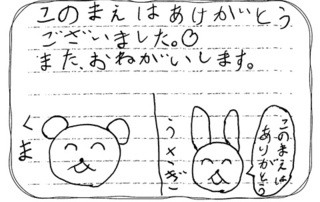 このまえはあけがいとう
ございました。
また、おねがいします。
くま
うさぎ
このまえは
ありがとう